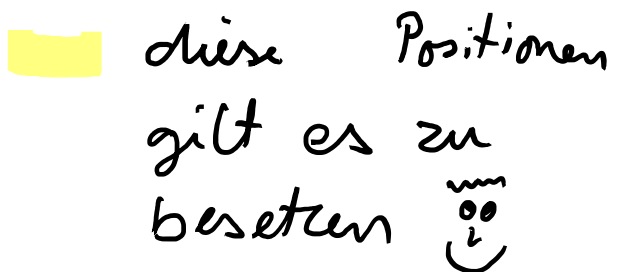 diese Positionen
gilt es zu
besetzen